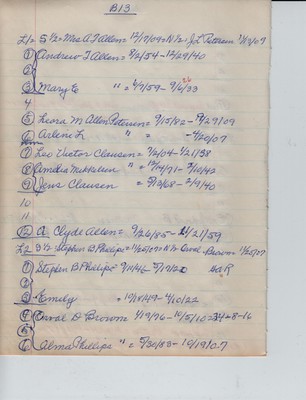 B13
L1= S 1/2= Mrs A T Allen= 12/17/09= N 1/2= J L Petersen 12/13/09
1 Andrew T Allen= 8/2/54-12/29/40
2
3 Mary E " = 6/7/59- 9/6/33
4
5 Leora M Allen Petersen= 9/15/82-
6 Arlene L " = -4/20/07
7 Leo Victor Clausen= 7/2/04- 1/21/38
8 Amelia Mickelsen " =
9 Jens Clausen = 5/12/68- 2/9/40
10
11
12 A Clyde Allen= 9/26/85- 2/21/59
L2 S 1/2= Stephen B Phelips= 11/20/07= N 1/2 Orval Brown= 1/20/07
1 Stephen B Phelips= 9/1/46- 5/19/22 GAR
2
3 Emily = 10/18/49- 4/10/22
4 Orval D Brown 1/19/76- 10/5/10=34-8-16
5
6 Alma Phillips " = 5/30/83- 10/19/07